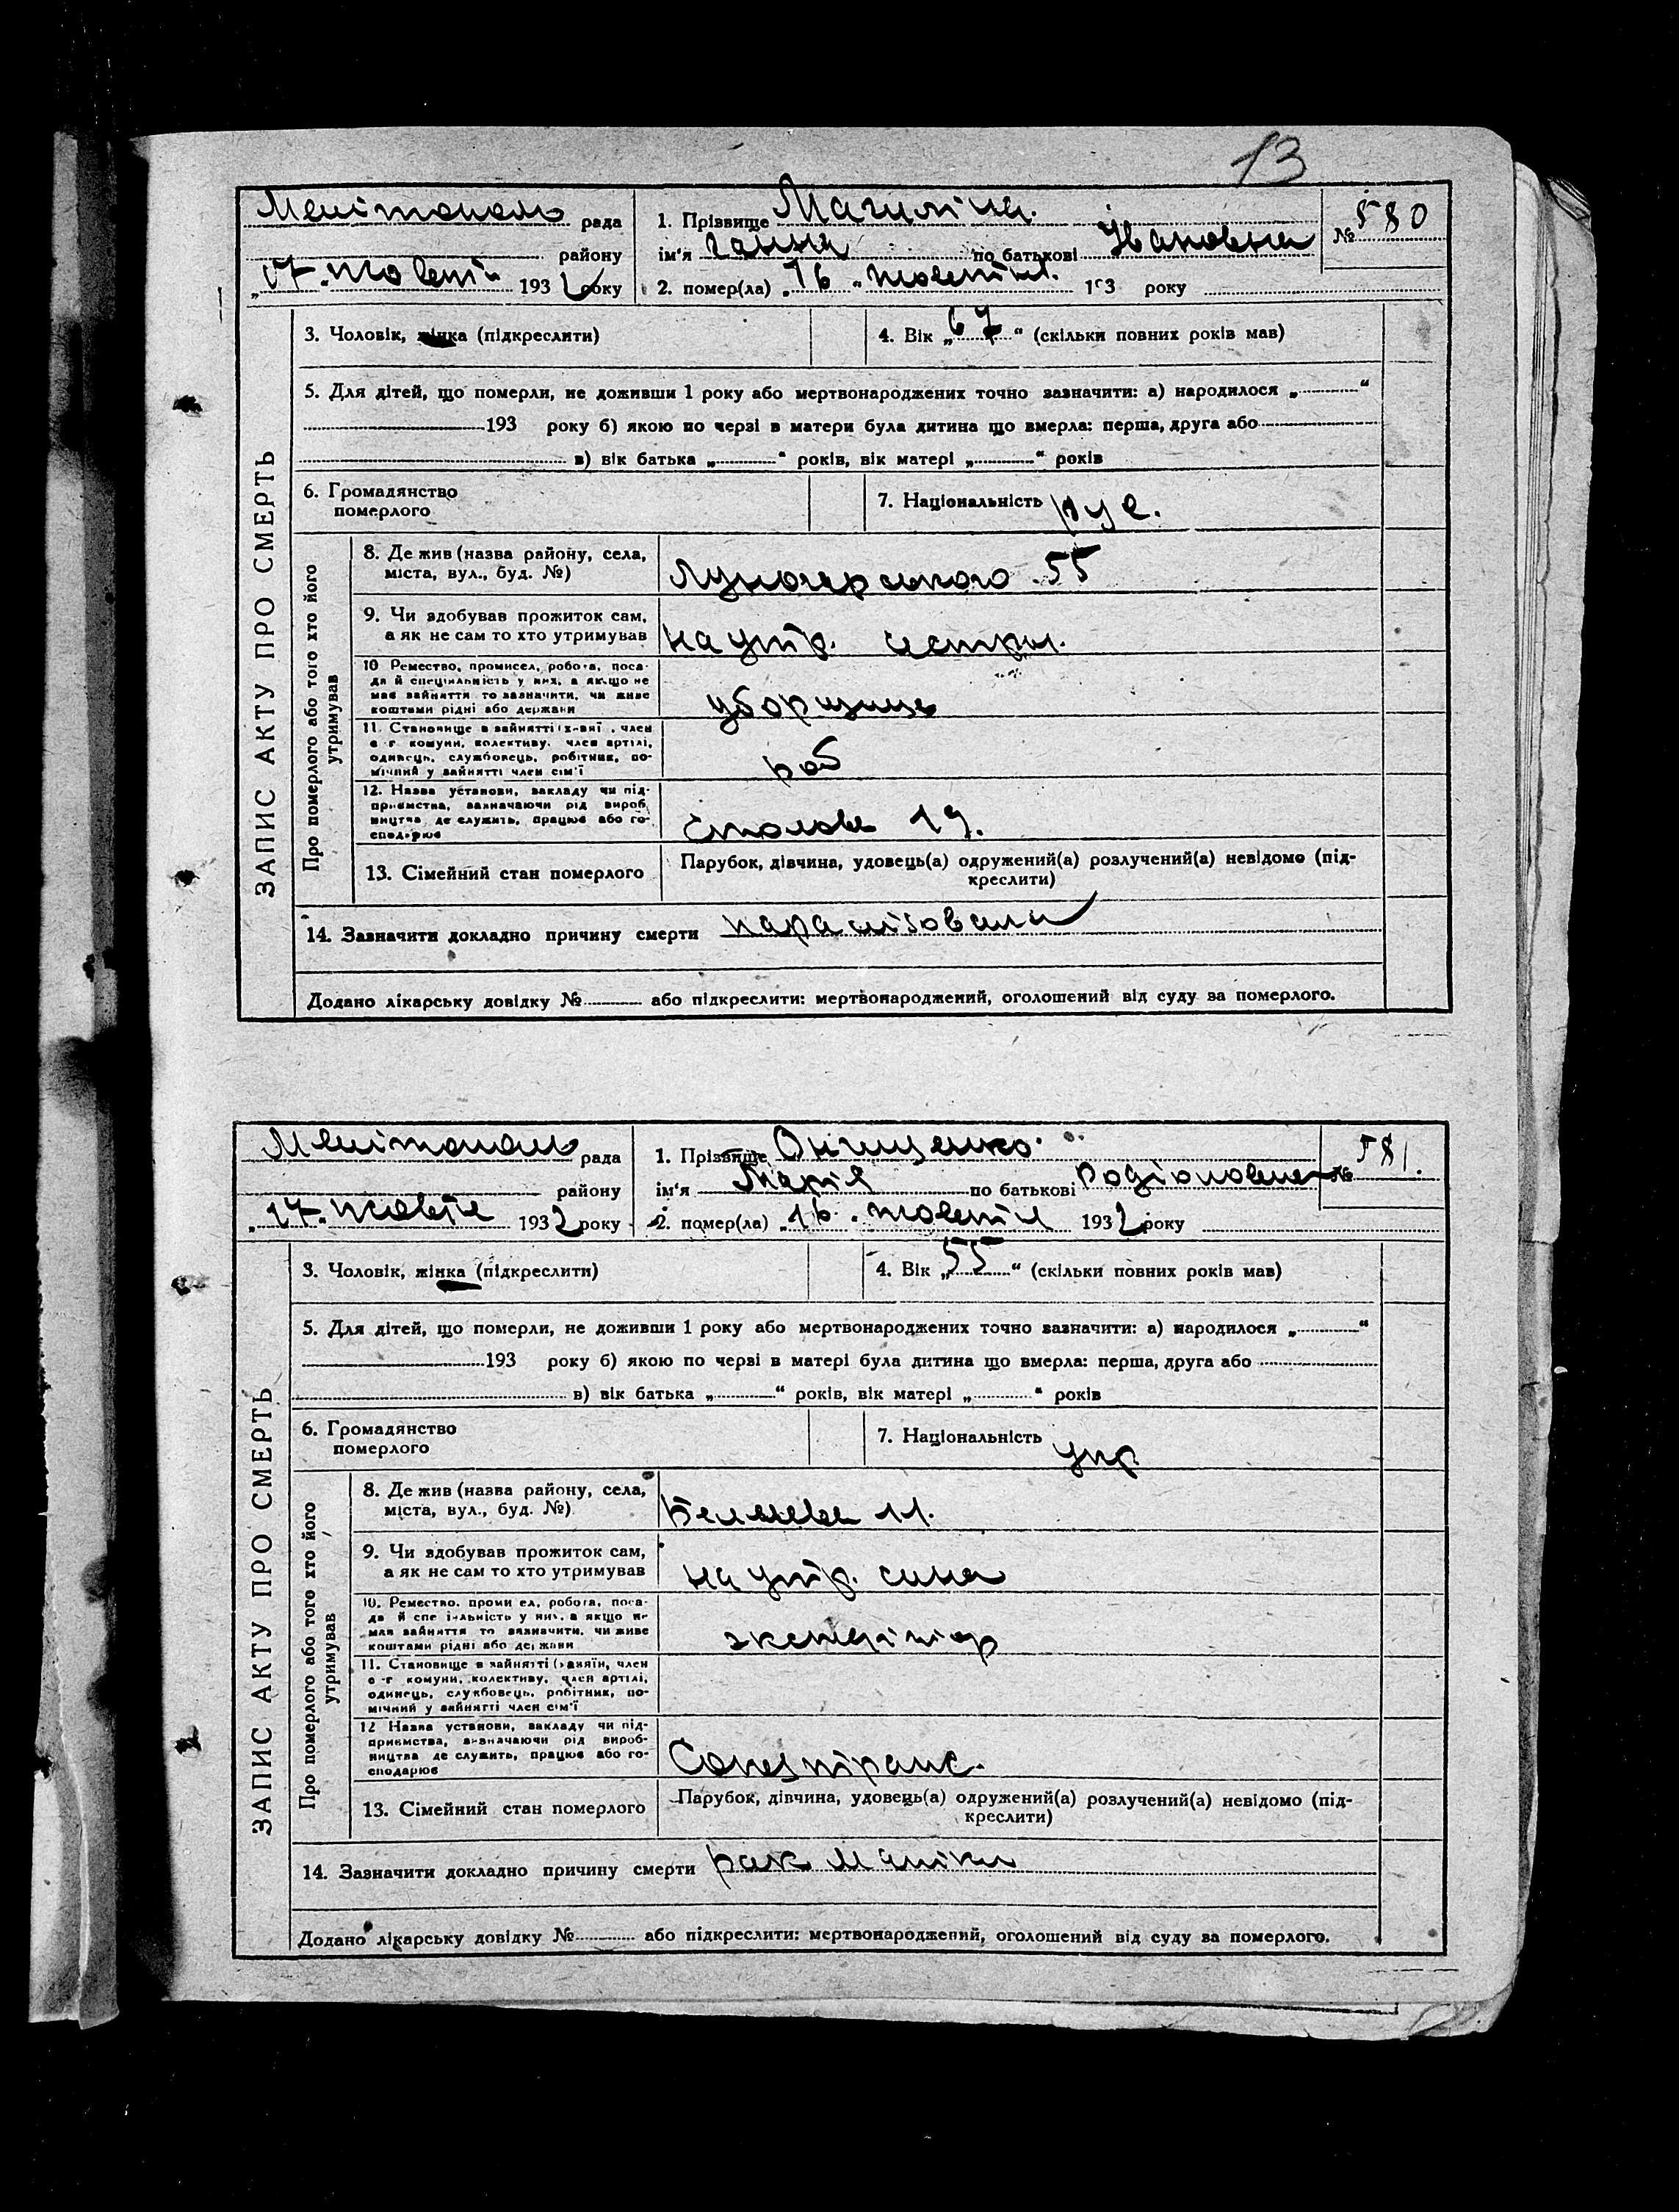 13
Мелітополь рада
району
„17“ жовтн 1932 року
1. Прізвище Магиліна.
ім'я Ганна по батькові Івановна
№ 580
2. помер(ла) „16“ жовтня. 193 року
ЗАПИС АКТУ ПРО СМЕРТЬ
3. Чоловік, жінка (підкреслити)
4. Вік „67“ (скільки повних років мав)
5. Для дітей, що померли, не доживши 1 року або мертвонароджених точно зазначити: а) народилося „ “
193 року б) якою по черзі в матери була дитина що вмерла: перша, друга або
в) вік батька „ “ років, вік матері „ “ років
6. Громадянство
померлого
7. Національність рус.
Про померлого або того хто його
утримував
8. Де жив (назва району, села,
міста, вул., буд. №)
55
9. Чи здобував прожиток сам,
а як не сам то хто утримував
на утр. сестри.
10 Ремество, промисел, робота, поса-
да й спеціяльність у них, а якщо не
має зайняття то зазначити, чи живе
коштами рідні або держави
уборщиця
11. Становище в зайнятті член
с-г комуни, колективу, член артілі,
одинець, службовець, робітник, по-
мічний у зайнятті член сім'ї
роб
12. Назва установи, закладу чи під-
приємства, зазначаючи рід вироб
ництва де служить, працює або го-
сподарює
Столова 19.
13. Сімейний стан померлого
Парубок, дівчина, удовець(а) одружений(а) розлучений(а) невідомо (під-
креслити)
14. Зазначити докладно причину смерти паралізована
Додано лікарську довідку № або підкреслити: мертвонароджений, оголошений від суду за померлого.
Мелітополь рада
району
„17“ жовтн 1932 року
1. Прізвище Онищенко.
ім'я Марія по батькові Родіоновна
№ 581.
2. помер(ла) „16“ жовтня 1932 року
ЗАПИС АКТУ ПРО СМЕРТЬ
3. Чоловік, жінка (підкреслити)
4. Вік „55“ (скільки повних років мав)
5. Для дітей, що померли, не доживши 1 року або мертвонароджених точно зазначити: а) народилося „ “
193 року б) якою по черзі в матері була дитина що вмерла: перша, друга або
в) вік батька „ “ років, вік матері „ “ років
6. Громадянство
померлого
7. Національність укр
Про померлого або того хто його
утримував
8. Де жив (назва району, села,
міста, вул., буд. №)
11.
9. Чи здобував прожиток сам,
а як не сам то хто утримував
на утр. сина
10. Ремество, промисел, робота, поса-
да й спеціяльність у них, а якщо не
має зайняття то зазначити, чи живе
коштами рідні або держави
11. Становище в зайнятті (хазяїн, член
с-г комуни, колективу, член артілі,
одинець, службовець, робітник, по-
мічний у зайнятті член сім'ї
12 Назва установи, закладу чи під-
приємства, зазначаючи рід вироб-
ництва де служить, працює або го-
сподарює
Союзтранс.
13. Сімейний стан померлого
Парубок, дівчина, удовець(а) одружений(а) розлучений(а) невідомо (під-
креслити)
14. Зазначити докладно причину смерти рак матки
Додано лікарську довідку № або підкреслити: мертвонароджений, оголошений від суду за померлого.